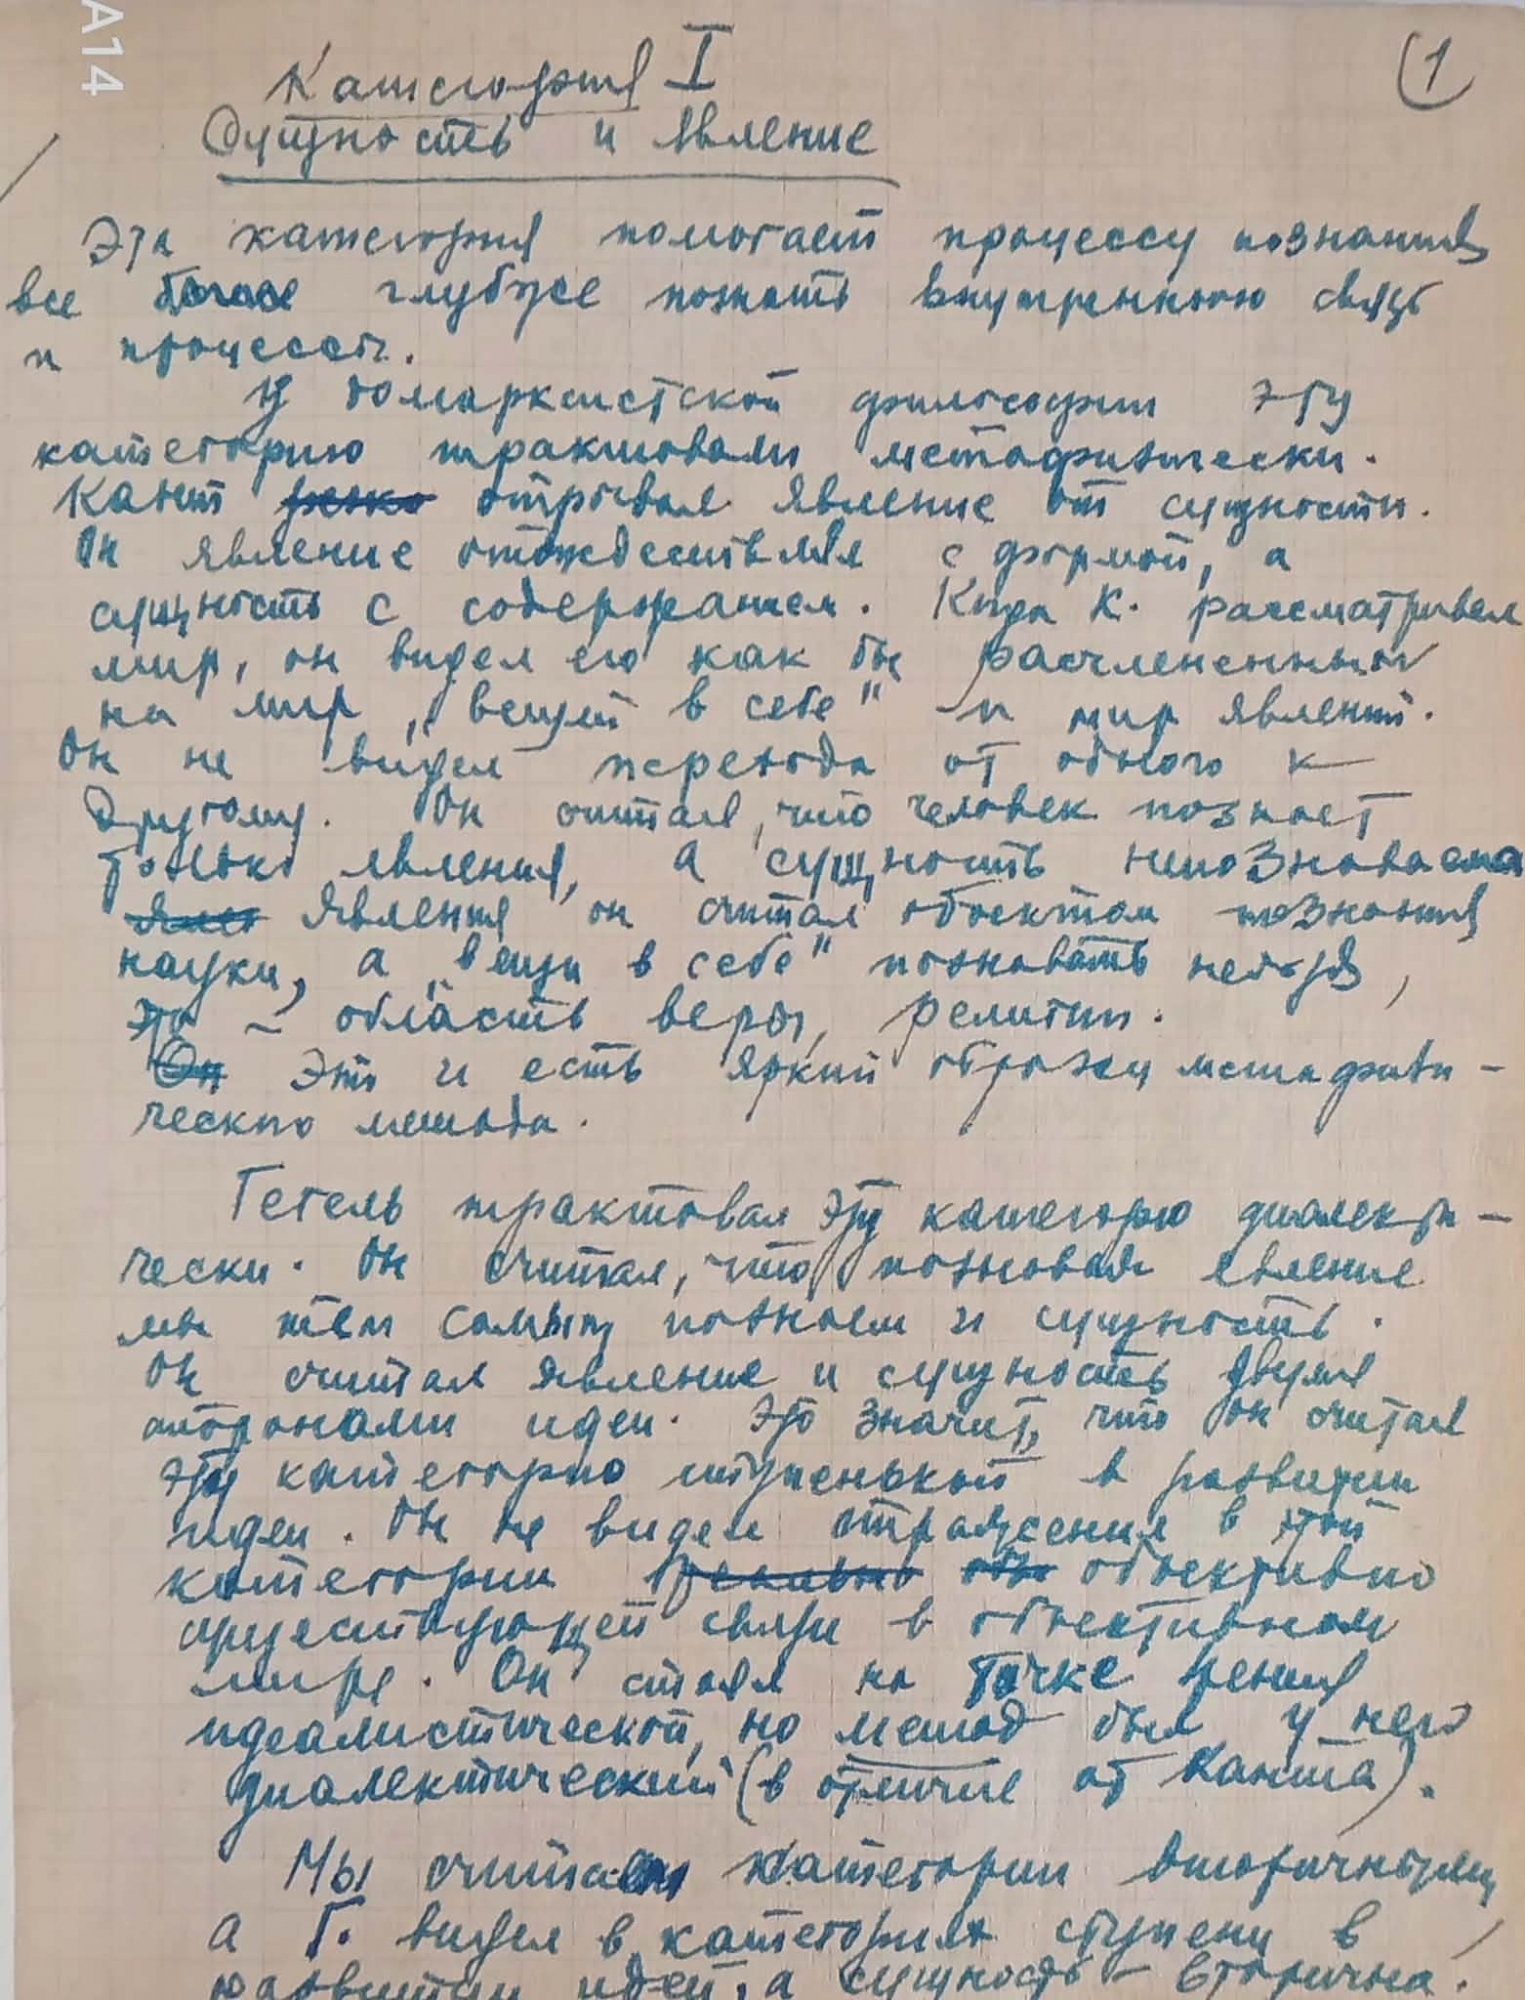 A14
Категория I
(1
Сущность и явление
Эта категория помогает процессу познания
все более глубже познать внутреннюю связь
и процессы.
У домарксистской философии эту
категорию трактовали метафизически.
Кант резко отрывал явление от сущности.
Он явление отождествлял с формой, а
сущность с содержанием. Когда К. рассматривал
мир, он видел его как бы расчлененным
на мир „вещей в себе" и мир явлений.
Он не видел перехода от одного к
другому. Он считал, что человек познает
только явления, а сущность непознаваема
Явления он считал объектом познания
науки, а „вещи в себе" познавать нельзя,
это – область веры, религии.
Он Это и есть яркий образец метафизи-
ческого метода.
Гегель трактовал эту категорию диалекти-
чески. Он считал, что познавая явление
мы тем самым познаем и сущность.
Он считал явление и сущность двумя
сторонами идеи. Это значит, что он считал
эту категорию ступенькой в развитии
идеи. Он не видел отражения в этой
категории реально объективно
существующей связи в объективном
мире. Он стоял на точке зрения
идеалистической, но метод был у него
диалектический (в отличие от Канта).
Мы считаем категории вторичными,
а Г. видел в категориях ступени в
развитии идеи, а сущность – вторична.